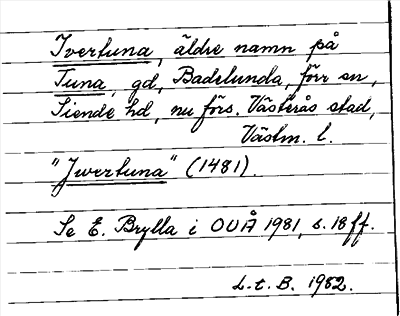 Ivertuna, äldre namn på
Tuna, gd, Badelunda, förr sn,
Siende hd, nu förs. Västerås stad,
Västm. l.
"Jwertuna" (1481).
Se E. Brylla i OUÅ 1981, s. 18 ff.
L.t.B. 1982.